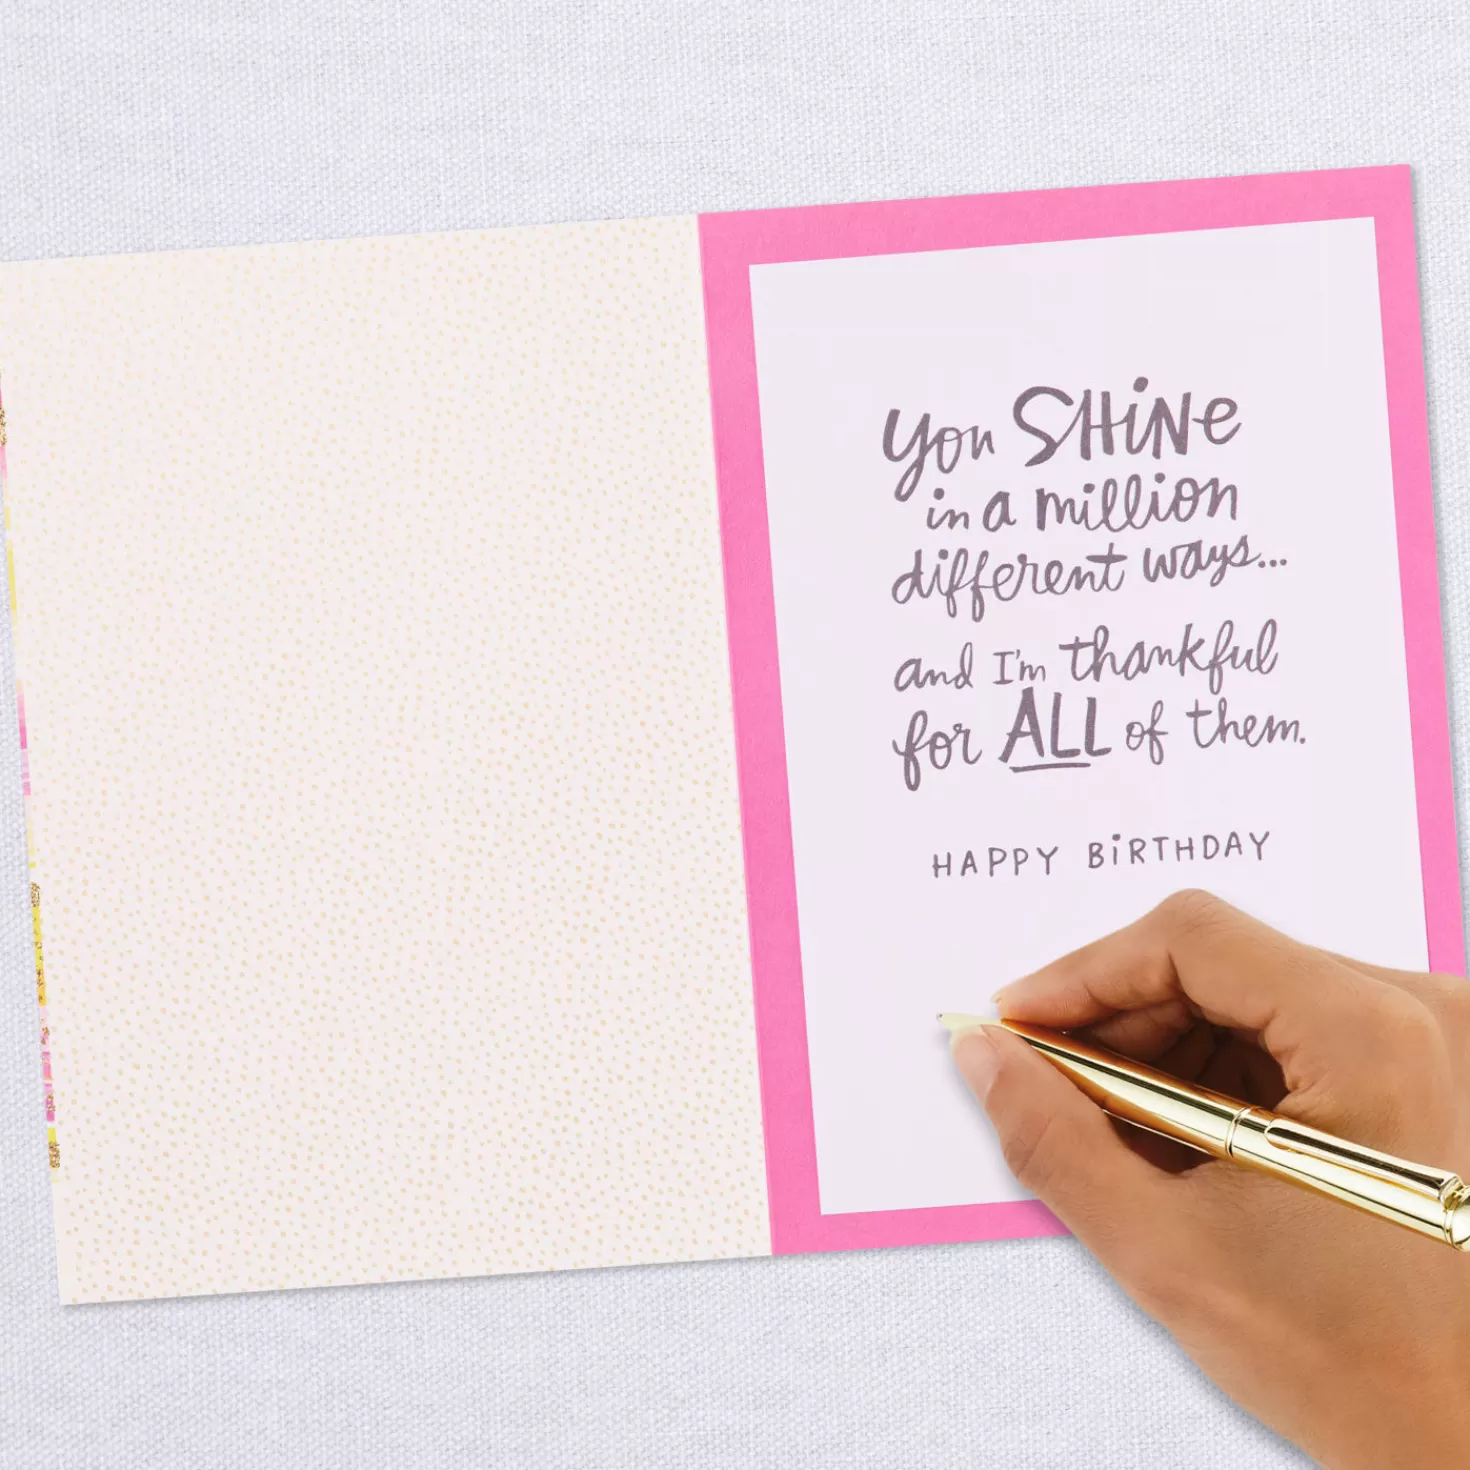 You SHiNe
in a million
different ways...
and I'm thankful
for ALL of them.
HAPPY BiRTHDAY